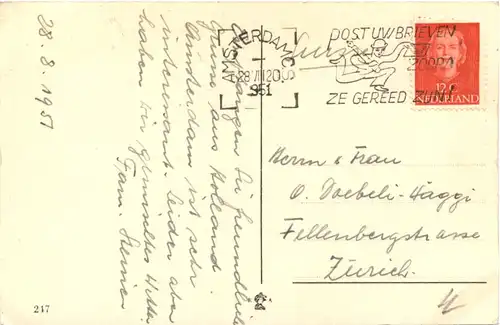 28.8.1951
freundliche
Grüsse aus Holland.
Amsterdam ist sehr
interessant. Leider aber
haben wir gemischtes Wetter
Fam.
AMSTERDAM C.S.
28 VIII 20
1951
POST UW BRIEVEN
ZODRA
ZE GEREED ZIJN!
12
NEDERLAND
Herrn & Frau
O. Doebeli-Häggi
Fellenbergstrasse
Zürich.
217